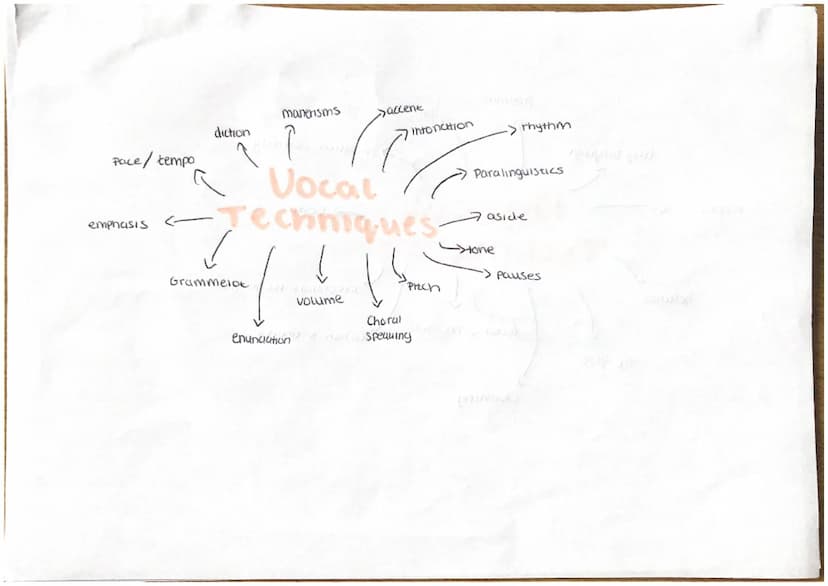 manerisms
accent
diction
intonation
rhythm
Pace / tempo
Paralinguistics
Vocal
Techniques
emphasis
aside
tone
pauses
Grammelot
Pitch
volume
Choral
speaking
enunciation